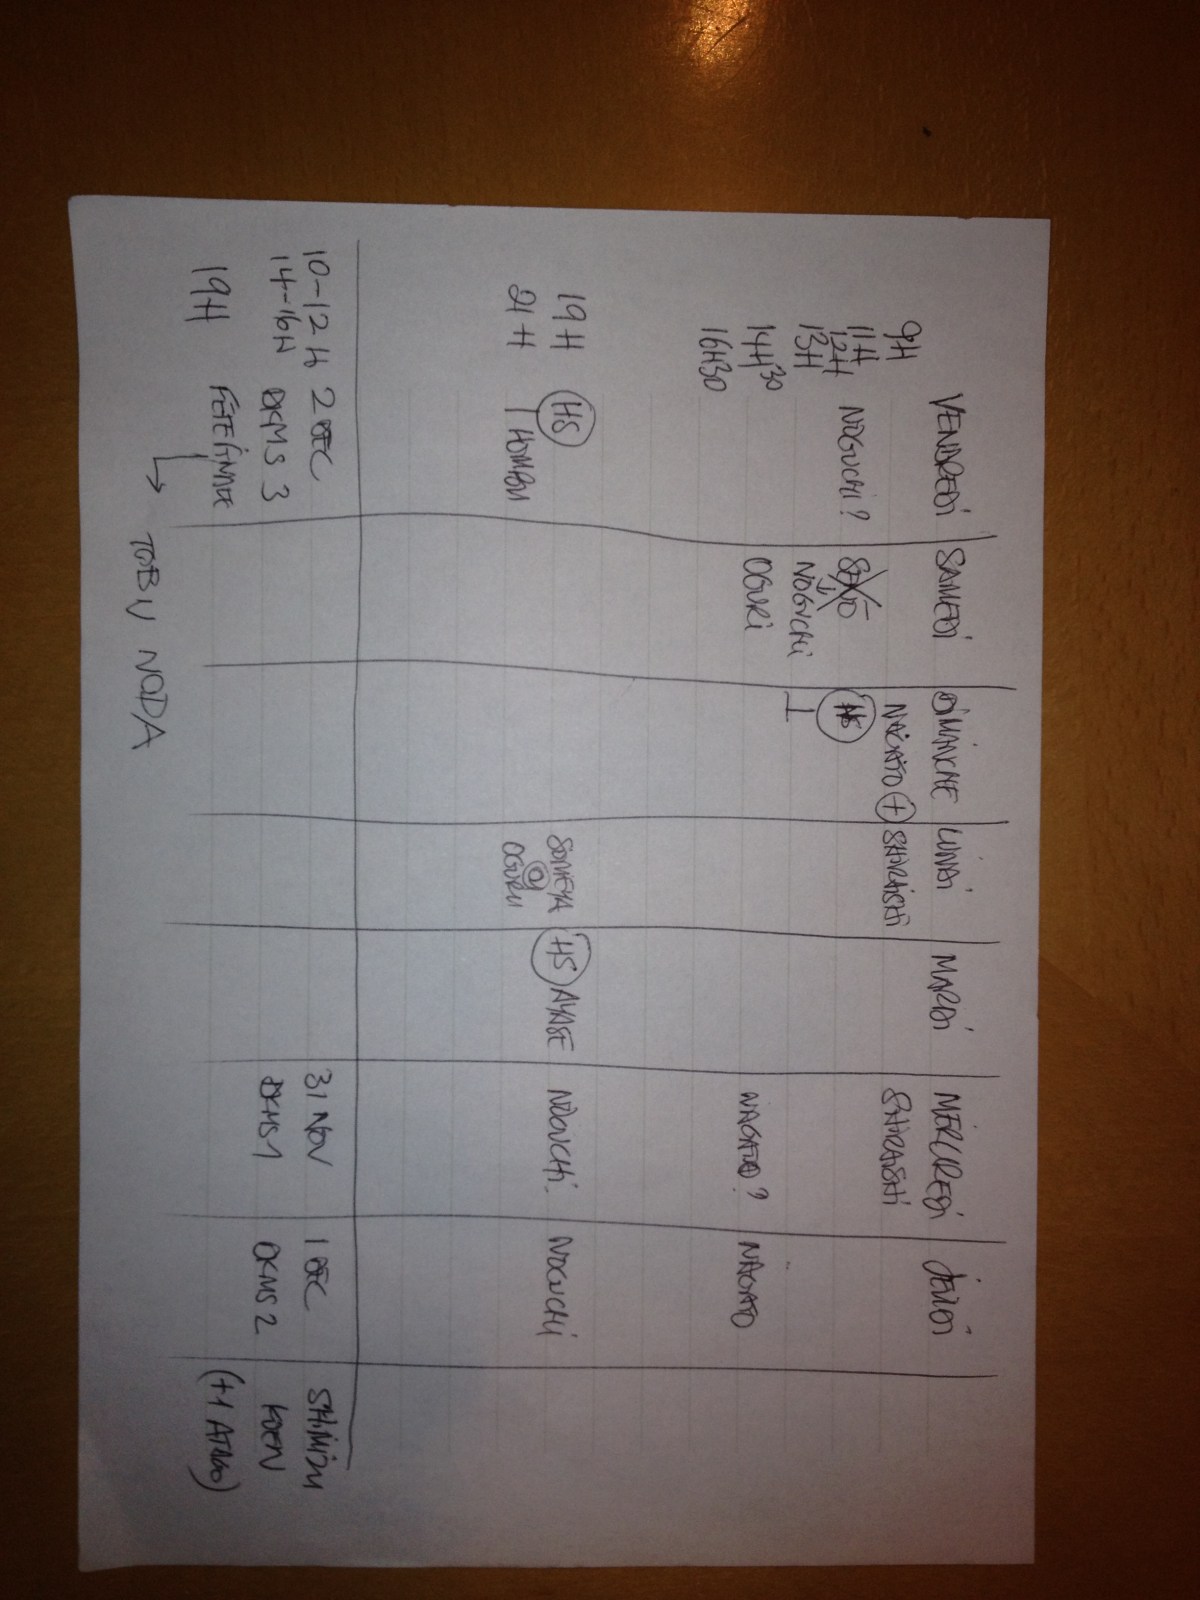 VENDREDI SAMEDI DIMANCHE LUNDI MARDI MERCREDI JEUDI
9H NAGATO + SHIRAISHI SHIRAISHI
11H
12H NOGUCHI? HS
13H NOGUCHI
14H30 OGURI NAGATO? NAGATO
16H30
19H HS SOMEYA HS AYASE NOGUCHI NOGUCHI
21H HOMBU @ OGURI
10-12H 2 DEC 31 NOV 1 DEC SHIMIZU
14-16H DKMS 3 DKMS 1 DKMS 2 KOEN
19H FÊTE FINALE (+1 ATAGO)
→ TOBU NODA